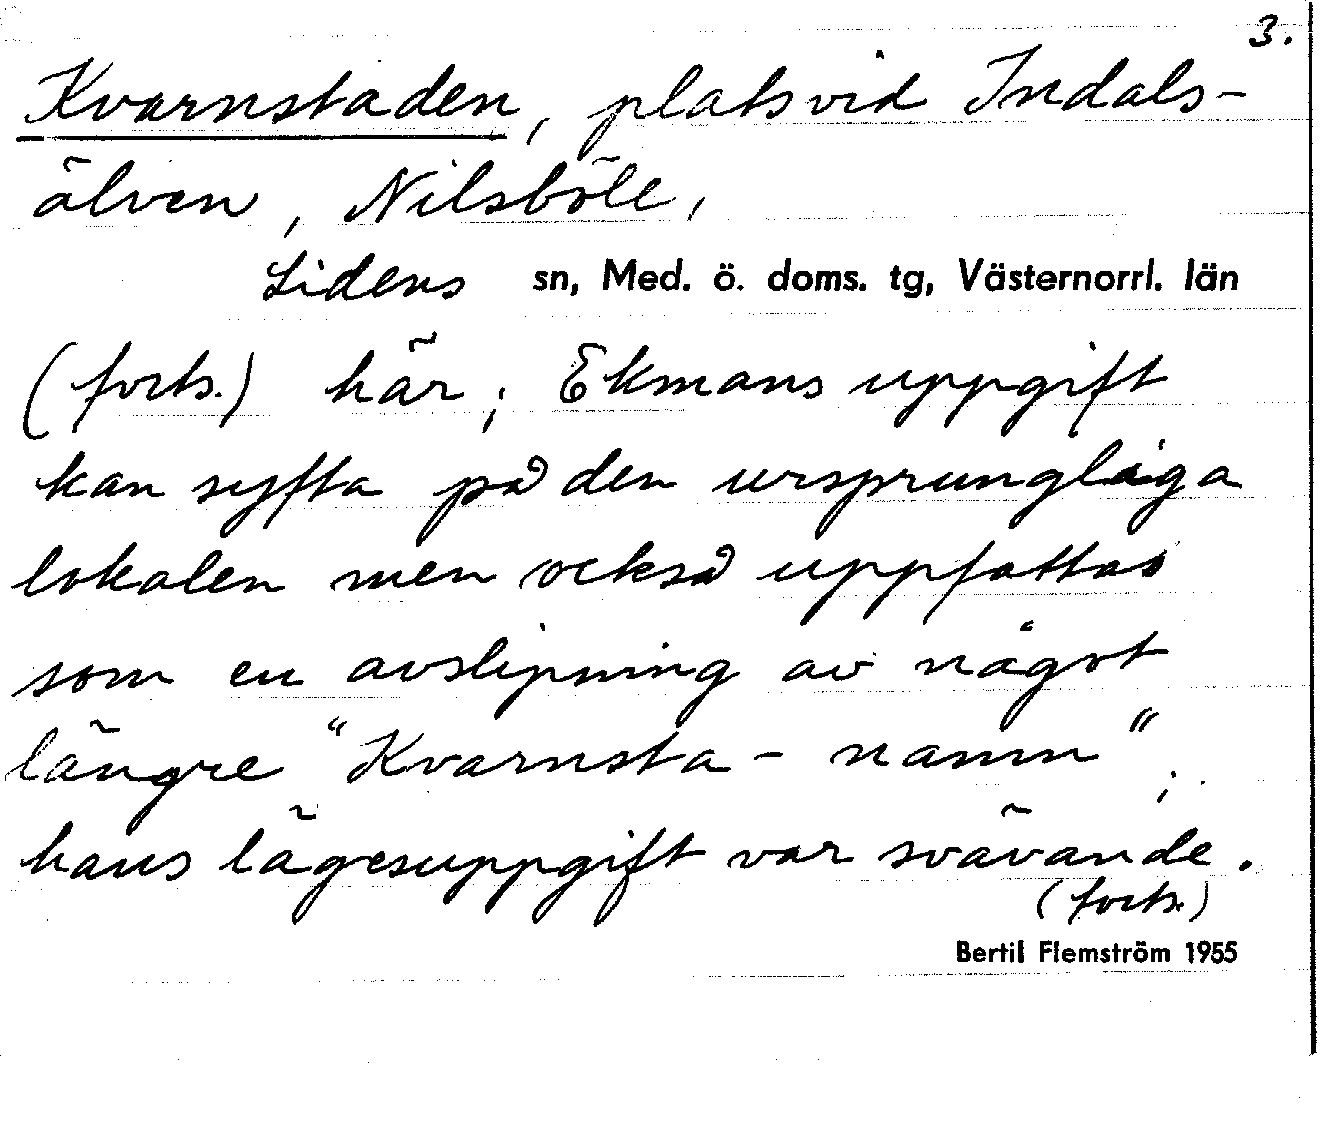 3.
Kvarnstaden, plats vid Indals-
älven, Nilsböle,
Lidens sn, Med. ö. doms. tg, Västernorrl. län
(forts.) här; Ekmans uppgift
kan syfta på den ursprungliga
lokalen men också uppfattas
som en avslipning av något
längre "Kvarnsta-namn";
hans lägesuppgift var svävande.
(forts.)
Bertil Flemström 1955